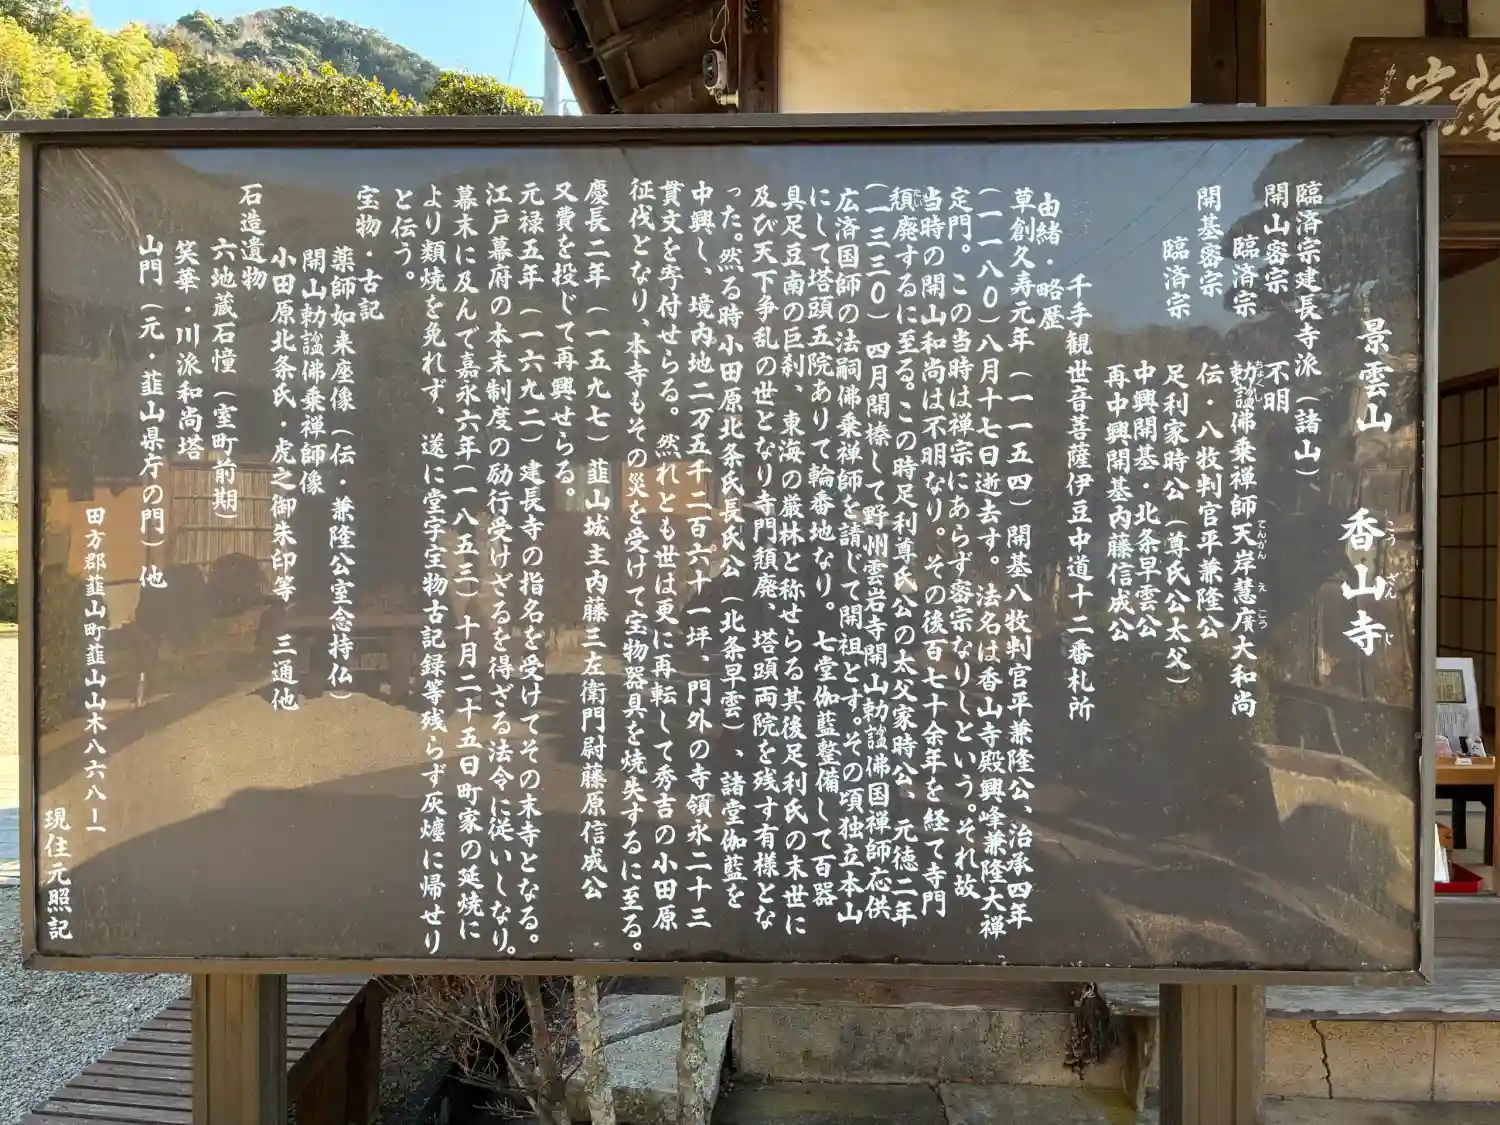 景雲山 香山寺
こうざんじ
臨済宗建長寺派（諸山）
開山密宗 不明
臨済宗 勅諡佛乗禅師天岸慧廣大和尚
ちょくし てんがん えこう
開基密宗 伝・八牧判官平兼隆公
臨済宗 足利家時公（尊氏公太父）
中興開基・北条早雲公
再中興開基内藤信成公
千手観世音菩薩伊豆中道十二番札所
由緒・略歴
草創久寿元年（一一五四）開基八牧判官平兼隆公、治承四年
（一一八〇）八月十七日逝去す。法名は香山寺殿興峰兼隆大禅
定門。この当時は禅宗にあらず密宗なりしという。それ故
当時の開山和尚は不明なり。その後百七十余年を経て寺門
頽廃するに至る。この時足利尊氏公の太父家時公、元徳二年
たい
（一三三〇）四月開榛して野州雲岩寺開山勅諡佛国禅師応供
広済国師の法嗣佛乗禅師を請じて開祖とす。その頃独立本山
にして塔頭五院ありて輪番地なり。七堂伽藍整備して百器
具足豆南の巨刹、東海の厳林と称せらる其後足利氏の末世に
及び天下争乱の世となり寺門頽廃、塔頭両院を残す有様とな
った。然る時小田原北条氏長氏公（北条早雲）、諸堂伽藍を
中興し、境内地二万五千二百六十一坪、門外の寺領永二十三
貫文を寄付せらる。然れとも世は更に再転して秀吉の小田原
征伐となり、本寺もその災を受けて宝物器具を焼失するに至る。
慶長二年（一五九七）韮山城主内藤三左衛門尉藤原信成公
又費を投じて再興せらる。
元禄五年（一六九二）建長寺の指名を受けてその末寺となる。
江戸幕府の本末制度の励行受けざるを得ざる法令に従いしなり。
幕末に及んで嘉永六年（一八五三）十月二十五日町家の延焼に
より類焼を免れず、遂に堂宇宝物古記録等残らず灰燼に帰せり
と伝う。
宝物・古記
薬師如来座像（伝・兼隆公室念持仏）
開山勅諡佛乗禅師像
小田原北条氏・虎之御朱印等 三通他
石造遺物
六地蔵石憧（室町前期）
笑華・川派和尚塔
山門（元・韮山県庁の門）他
田方郡韮山町韮山山木八六八ー一
現住元照記